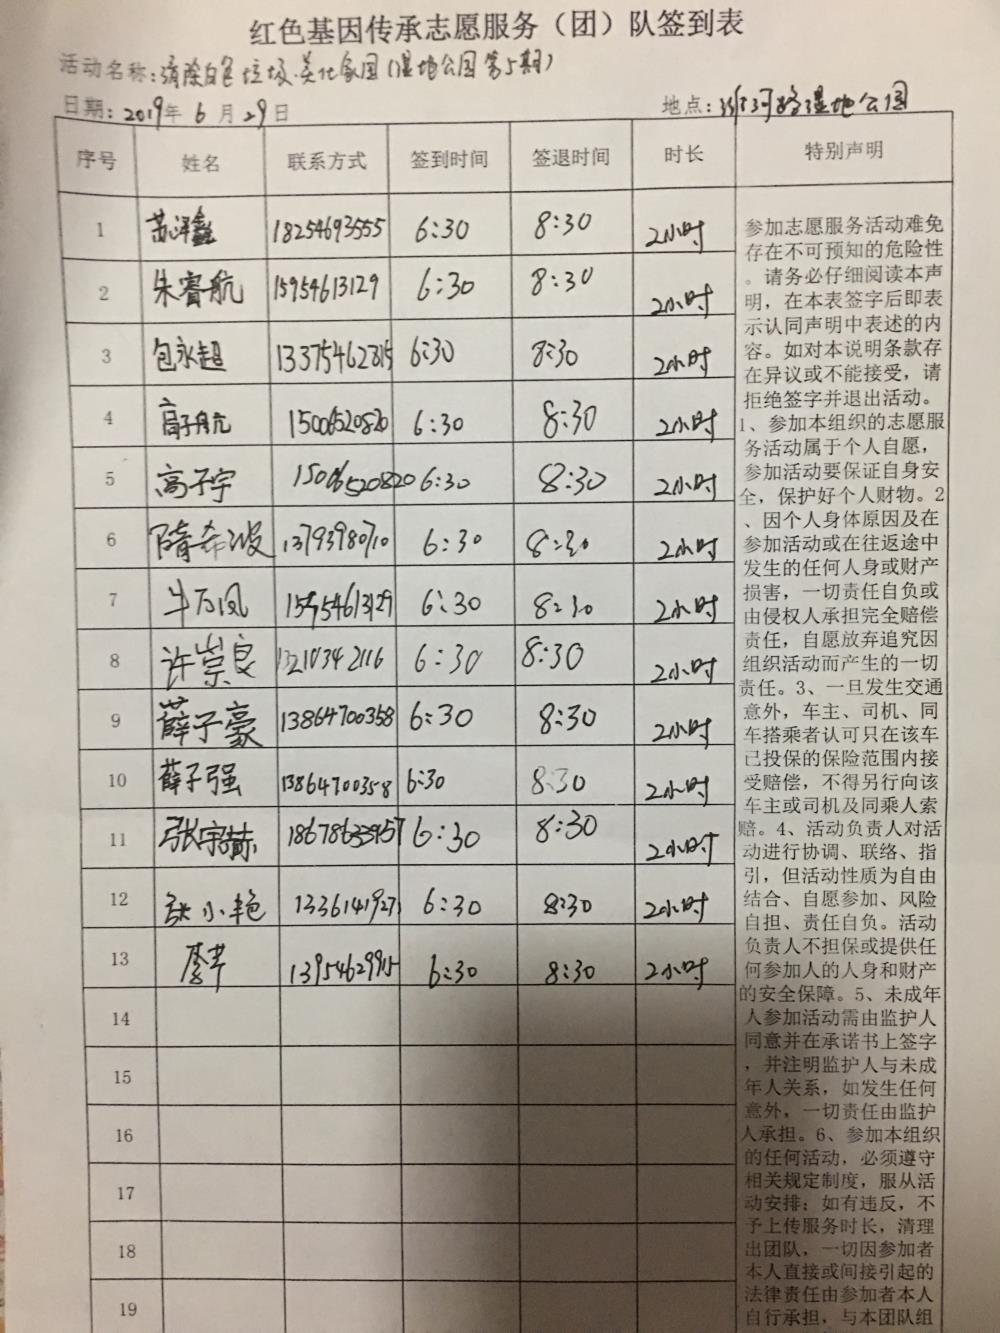 红色基因传承志愿服务（团）队签到表
活动名称：清除白色垃圾·美化家园（湿地公园第5期）
日期：2019年 6 月 29日 地点：湿地公园
序号 姓名 联系方式 签到时间 签退时间 时长 特别声明
1 苏泽鑫 18254693555 6:30 8:30 2小时
2 朱睿航 15954613129 6:30 8:30 2小时
3 包永超 13375462815 6:30 8:30 2小时
4 高子航 15006520820 6:30 8:30 2小时
5 高子宇 15006520820 6:30 8:30 2小时
6 隋希波 13793980710 6:30 8:30 2小时
7 牛万凤 15954613129 6:30 8:30 2小时
8 许崇良 13210342116 6:30 8:30 2小时
9 薛子豪 13864700358 6:30 8:30 2小时
10 薛子强 13864700358 6:30 8:30 2小时
11 张宇赫 6:30 8:30 2小时
12 张小艳 13361419271 6:30 8:30 2小时
13 13954629915 6:30 8:30 2小时
14
15
16
17
18
19
参加志愿服务活动难免
存在不可预知的危险性
。请务必仔细阅读本声
明，在本表签字后即表
示认同声明中表述的内
容。如对本说明条款存
在异议或不能接受，请
拒绝签字并退出活动。
1、参加本组织的志愿服
务活动属于个人自愿，
参加活动要保证自身安
全，保护好个人财物。2
、因个人身体原因及在
参加活动或在往返途中
发生的任何人身或财产
损害，一切责任自负或
由侵权人承担完全赔偿
责任，自愿放弃追究因
组织活动而产生的一切
责任。3、一旦发生交通
意外，车主、司机、同
车搭乘者认可只在该车
已投保的保险范围内接
受赔偿，不得另行向该
车主或司机及同乘人索
赔。4、活动负责人对活
动进行协调、联络、指
引，但活动性质为自由
结合、自愿参加、风险
自担、责任自负。活动
负责人不担保或提供任
何参加人的人身和财产
的安全保障。5、未成年
人参加活动需由监护人
同意并在承诺书上签字
，并注明监护人与未成
年人关系，如发生任何
意外，一切责任由监护
人承担。6、参加本组织
的任何活动，必须遵守
相关规定制度，服从活
动安排；如有违反，不
予上传服务时长，清理
出团队，一切因参加者
本人直接或间接引起的
法律责任由参加者本人
自行承担，与本团队组